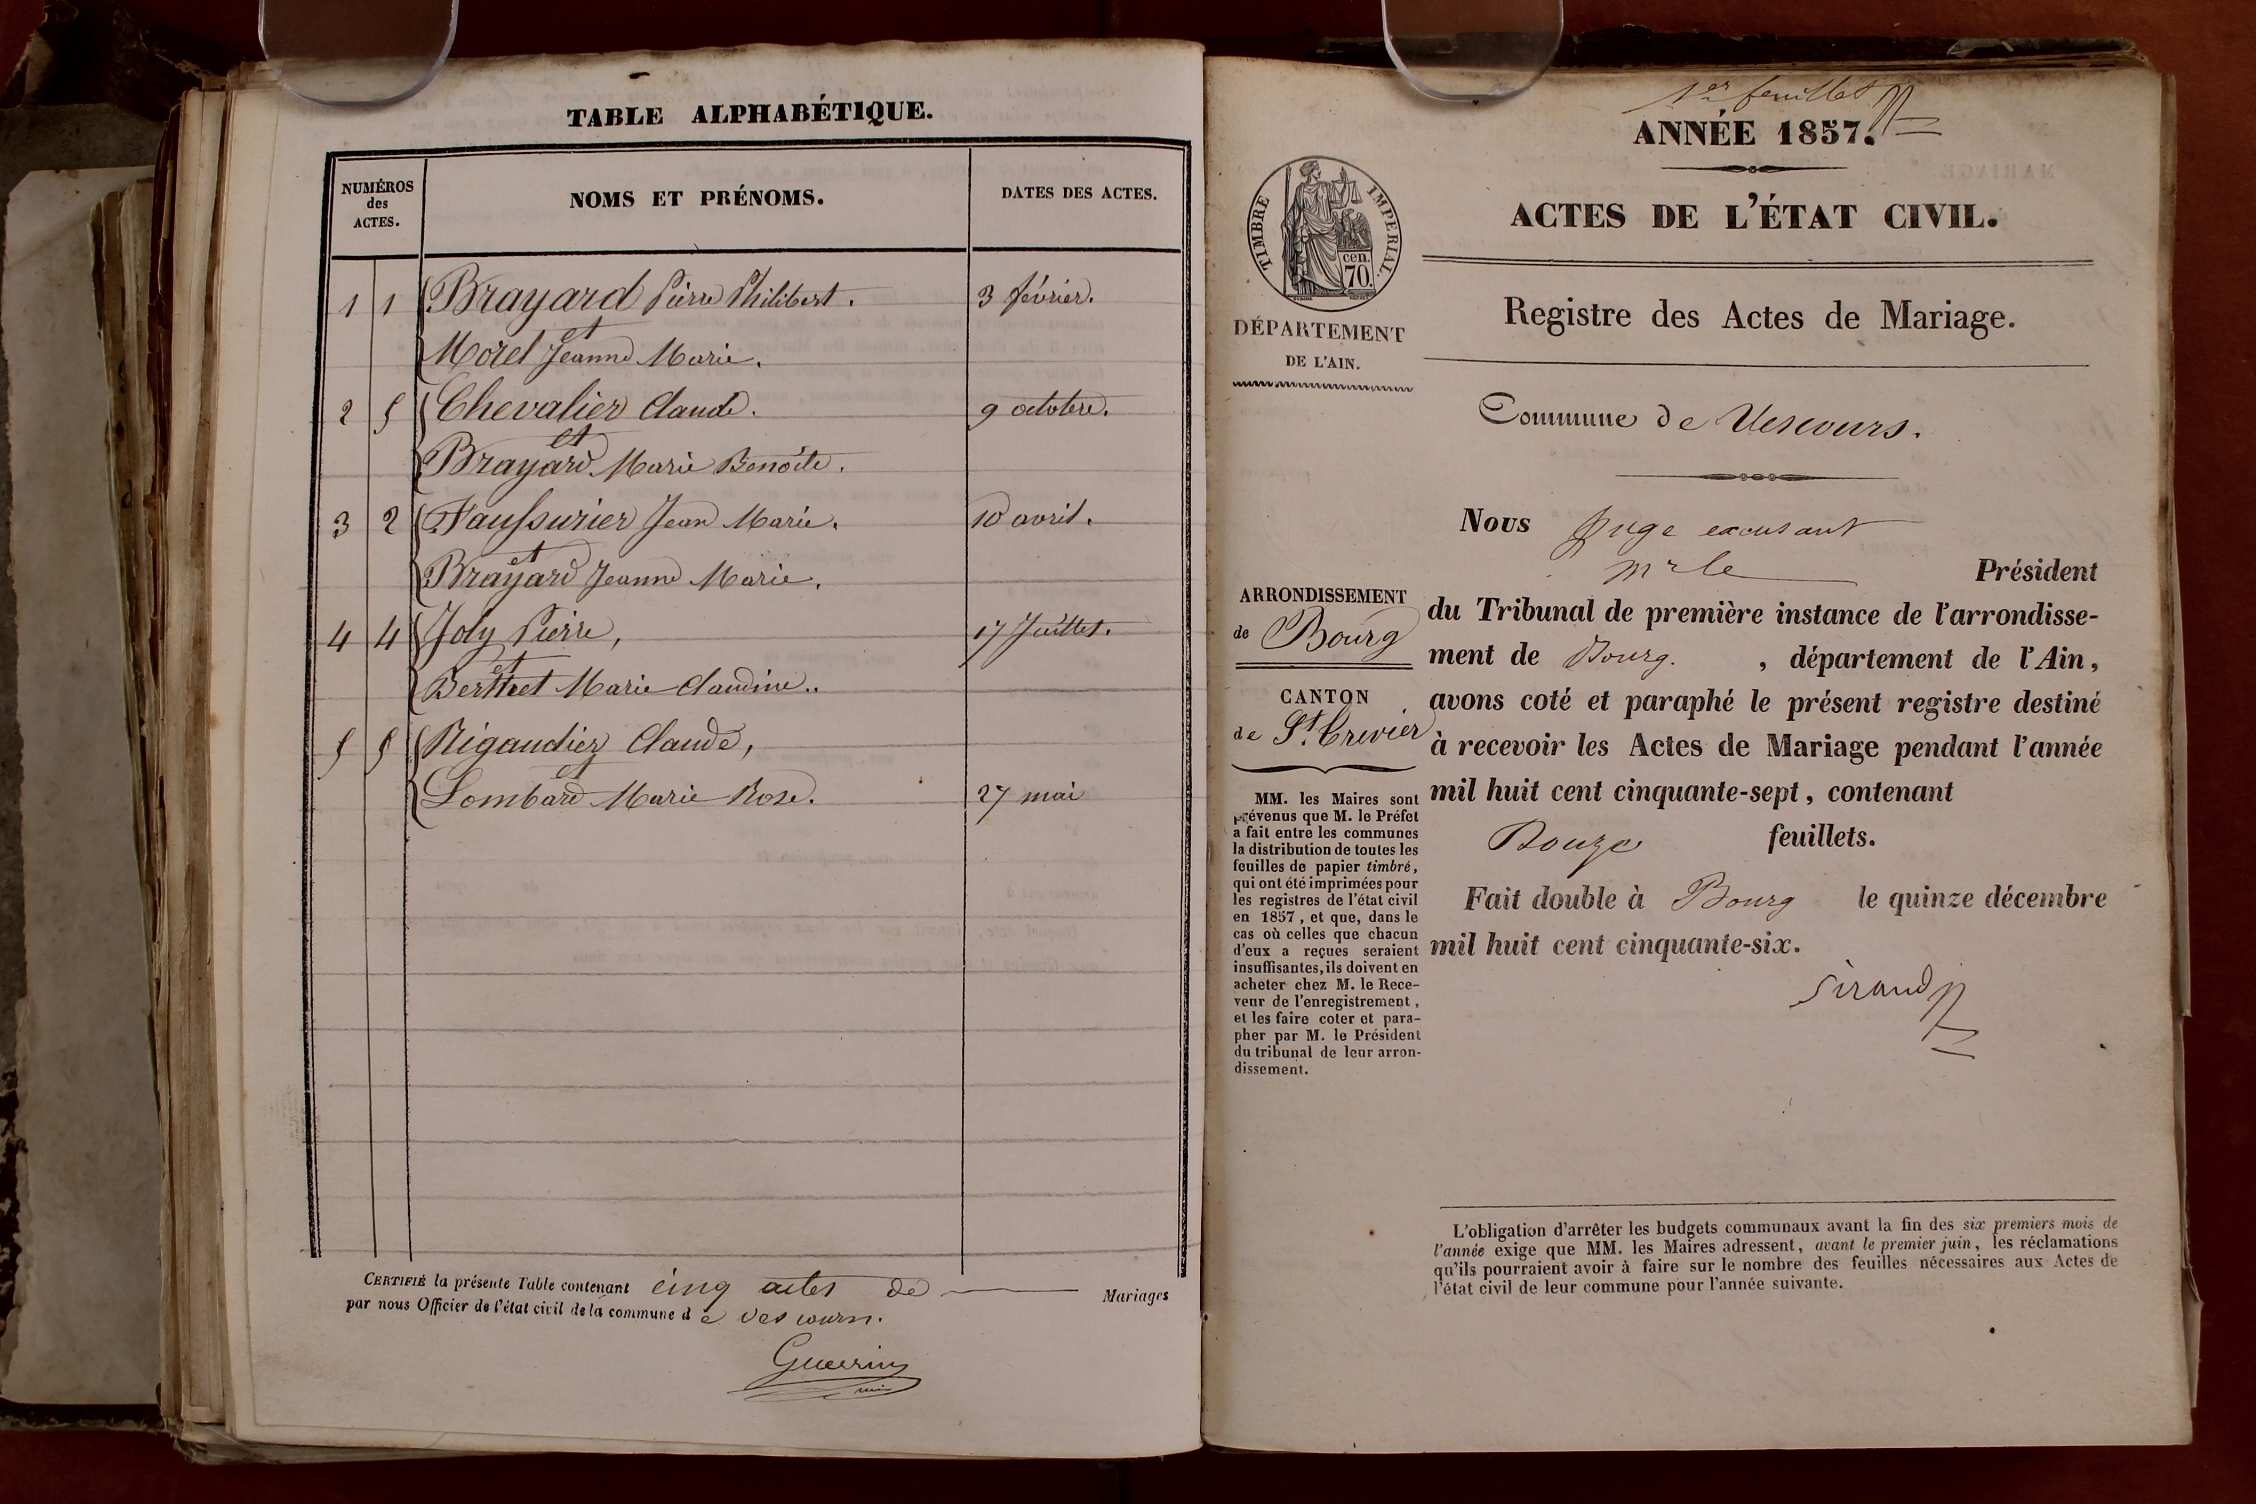 TABLE ALPHABÉTIQUE.
NUMÉROS des ACTES.
NOMS ET PRÉNOMS.
DATES DES ACTES.
1 1 Brayard Pierre Philibert. 3 février.
et
Morel Jeanne Marie.
2 5 Chevalier Claude. 9 octobre.
et
Brayard Marie Benoite.
3 2 Faussurier Jean Marie. 10 avril.
et
Brayard Jeanne Marie.
4 4 Joly Pierre, 17 Juillet.
et
Berthet Marie Claudine..
5 5 Rigaudier Claude,
et
Lombard Marie Rose. 27 mai
CERTIFIÉ la présente Table contenant cinq actes de Mariages
par nous Officier de l'état civil de la commune de Vescours.
Guerrin
1er feuillet
ANNÉE 1857.
ACTES DE L'ÉTAT CIVIL.
TIMBRE IMPERIAL.
70.
cen.
DÉPARTEMENT
DE L'AIN.
Registre des Actes de Mariage.
Commune de Vescours.
Nous Juge excusant
mr le Président
du Tribunal de première instance de l'arrondisse-
ment de Bourg. , département de l'Ain,
avons coté et paraphé le présent registre destiné
à recevoir les Actes de Mariage pendant l'année
mil huit cent cinquante-sept, contenant
Douze feuillets.
Fait double à Bourg le quinze décembre
mil huit cent cinquante-six.
Sirand
ARRONDISSEMENT
de Bourg
CANTON
de St. Trivier
MM. les Maires sont
prévenus que M. le Préfet
a fait entre les communes
la distribution de toutes les
feuilles de papier timbré,
qui ont été imprimées pour
les registres de l'état civil
en 1857, et que, dans le
cas où celles que chacun
d'eux a reçues seraient
insuffisantes, ils doivent en
acheter chez M. le Rece-
veur de l'enregistrement,
et les faire coter et para-
pher par M. le Président
du tribunal de leur arron-
dissement.
L'obligation d'arrêter les budgets communaux avant la fin des six premiers mois de
l'année exige que MM. les Maires adressent, avant le premier juin, les réclamations
qu'ils pourraient avoir à faire sur le nombre des feuilles nécessaires aux Actes de
l'état civil de leur commune pour l'année suivante.